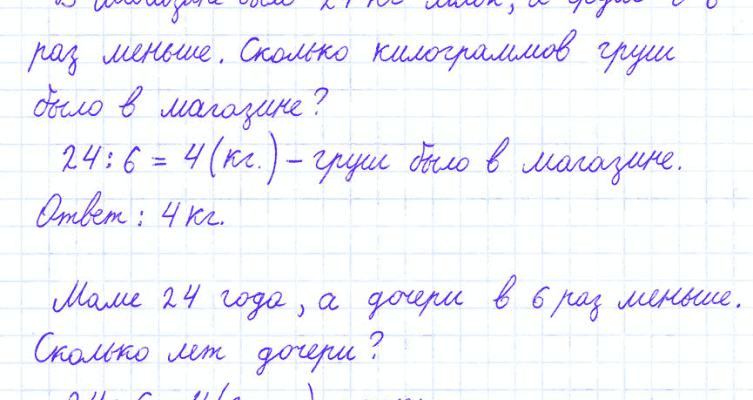 В магазине было 24 кг яблок, а груш в 6
раз меньше. Сколько килограммов груш
было в магазине?
24 : 6 = 4 (кг.) – груш было в магазине.
Ответ : 4 кг.
Маме 24 года, а дочери в 6 раз меньше.
Сколько лет дочери?
24 : 6 = 4